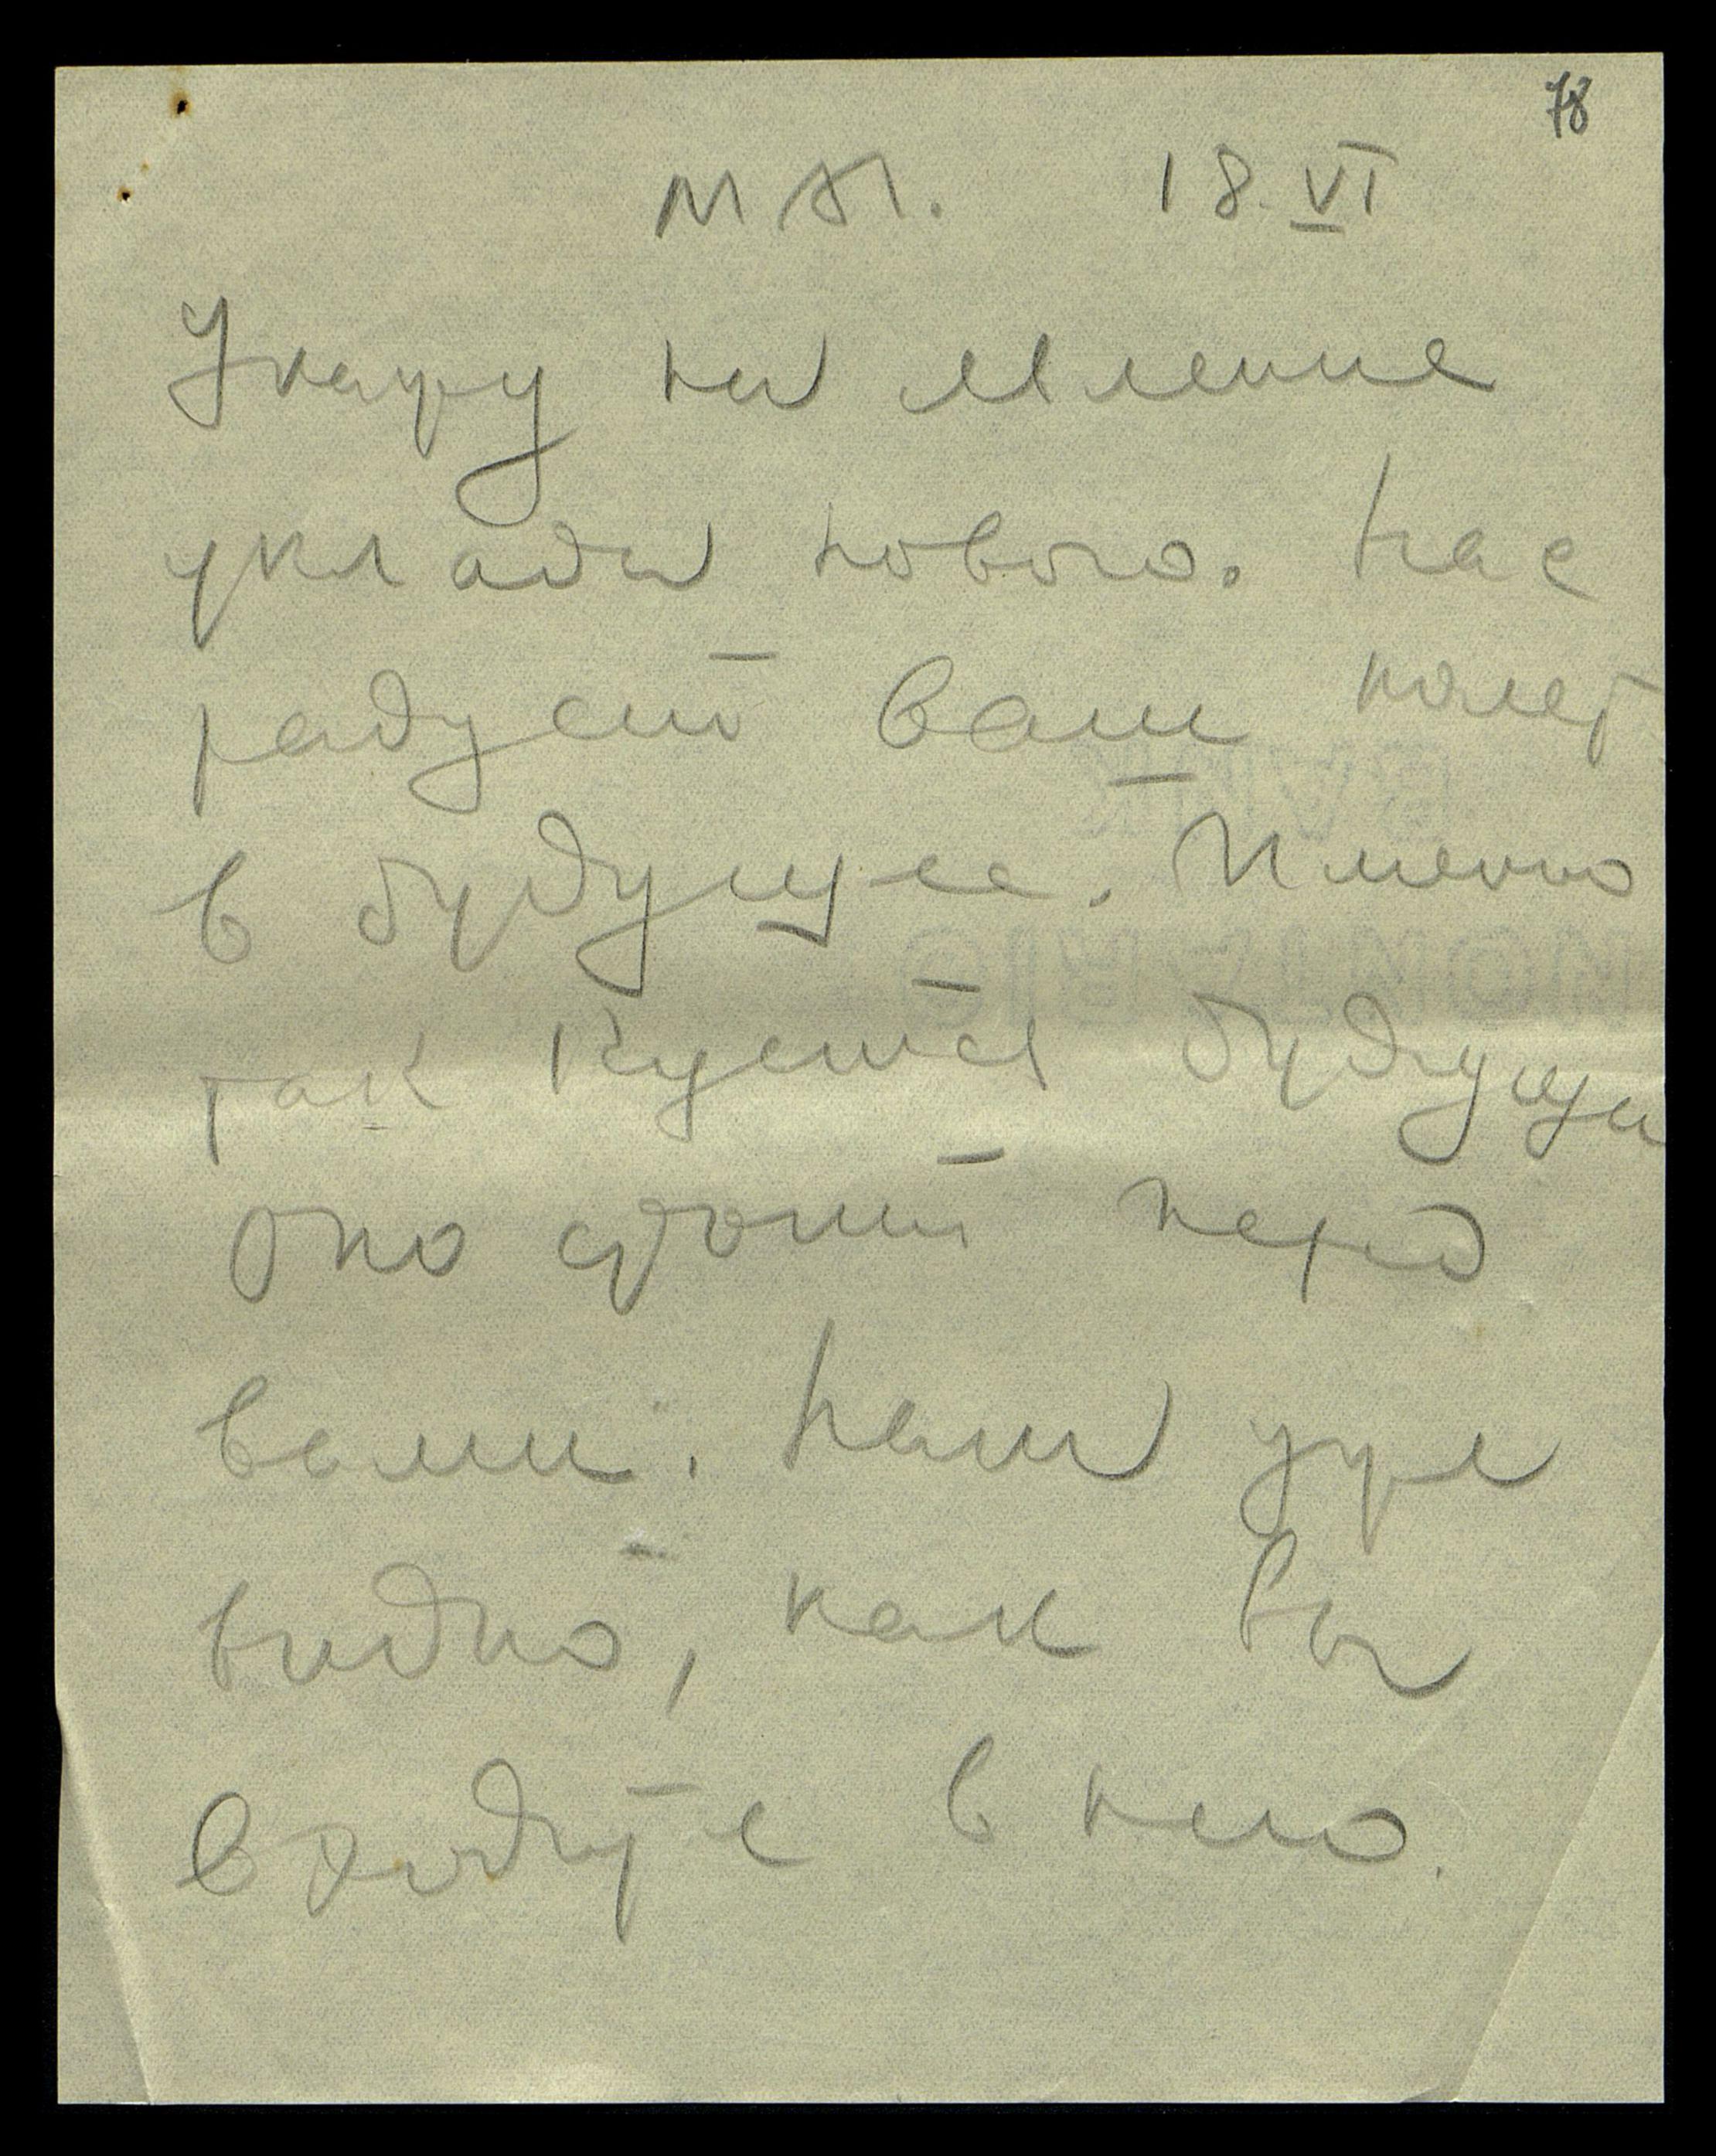 78
М М. 18. VI
Укажу на явление
уклада нового. Нас
радует ваш полет
в будущее. Именно
так куется будущее
оно стоит перед
вами. Нам уже
видно, как вы
входите в него.